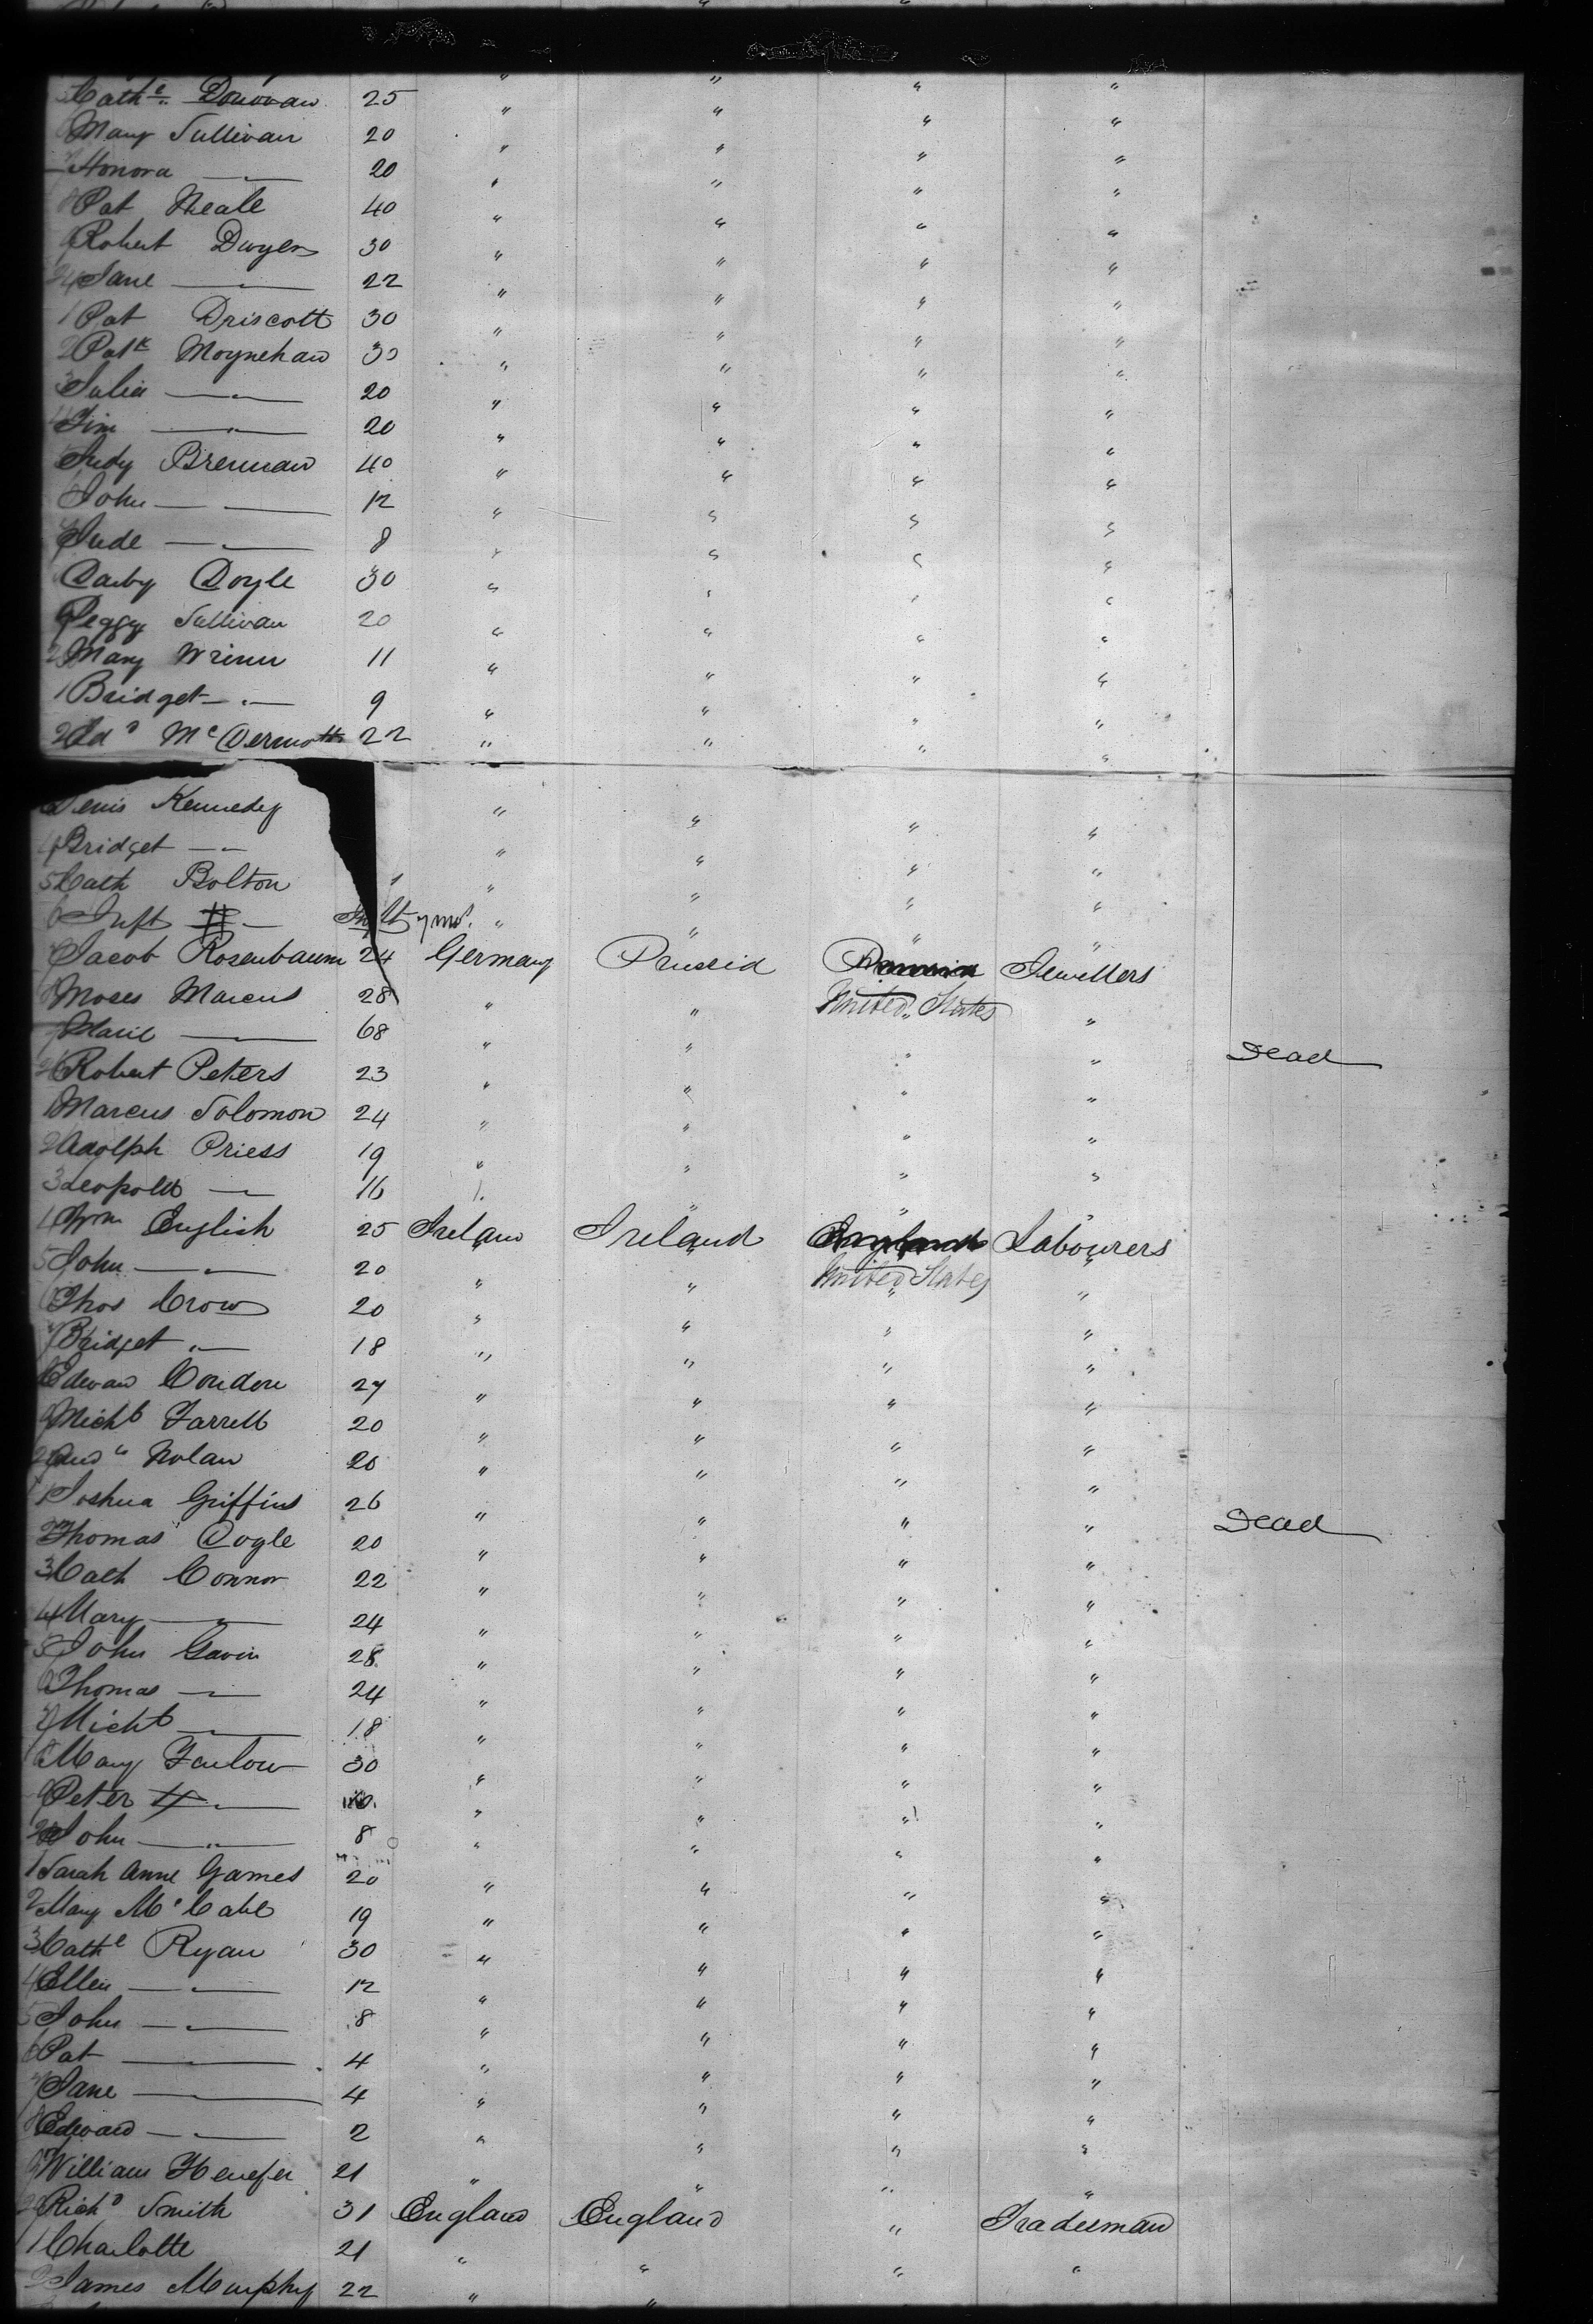 Cathe Donovan 25 " " " "
Mary Sullivan 20 " " " "
Honora — " — 20 " " " "
Pat Neale 40 " " " "
Robert Dwyer 30 " " " "
Jane — " — 22 " " " "
1 Pat Driscoll 30 " " " "
2 Patk Moynehan 30 " " " "
3 Julia — " — 20 " " " "
4 Tim — " — 20 " " " "
Judy Brennan 40 " " " "
John — " — 12 " " " "
7 Jude — " — 8 " " " "
Darby Doyle 30 " " " "
9 Peggy Sullivan 20 " " " "
Mary Wrinn 11 " " " "
1 Bridget — " — 9 " " " "
2 Edd McDermott 22 " " " "
Denis Kennedy " " " "
4 Bridget — " — " " " "
5 Cath Bolton " " " "
6 Inft — 7 mos. " " " "
7 Jacob Rosenbaum 24 Germany Prussia United States Jewellers
8 Moses Marcus 28 " " " "
9 Marie — " — 68 " " " " Dead
Robert Peters 23 " " " "
1 Marcus Solomon 24 " " " "
2 Adolph Priess 19 " " " "
3 Leopold — " — 16 " " " "
4 Wm English 25 Ireland Ireland England United States Labourers
5 John — " — 20 " " " "
6 Thos Crow 20 " " " "
7 Bridget " — 18 " " " "
8 Edward Condon 27 " " " "
9 Michl Farrell 20 " " " "
Andw Nolan 20 " " " "
1 Joshua Griffins 26 " " " " Dead
2 Thomas Doyle 20 " " " "
3 Cath Connor 22 " " " "
4 Mary — " — 24 " " " "
5 John Gavin 28 " " " "
6 Thomas — " — 24 " " " "
7 Michl — " — 18 " " " "
8 Mary Farlow 30 " " " "
9 Peter — " " " "
John — " — 8 " " " "
1 Sarah Anne Games 20 " " " "
2 Mary McCabe 19 " " " "
3 Cathe Ryan 30 " " " "
4 Ellen — " — 12 " " " "
5 John — " — 8 " " " "
6 Pat — " — 4 " " " "
7 Jane — " — 4 " " " "
8 Edward — " — 2 " " " "
9 William Henefer 21 " " " "
Richd Smith 31 England England " Tradesman
1 Charlotte 21 " " " "
2 James Murphy 22 " "